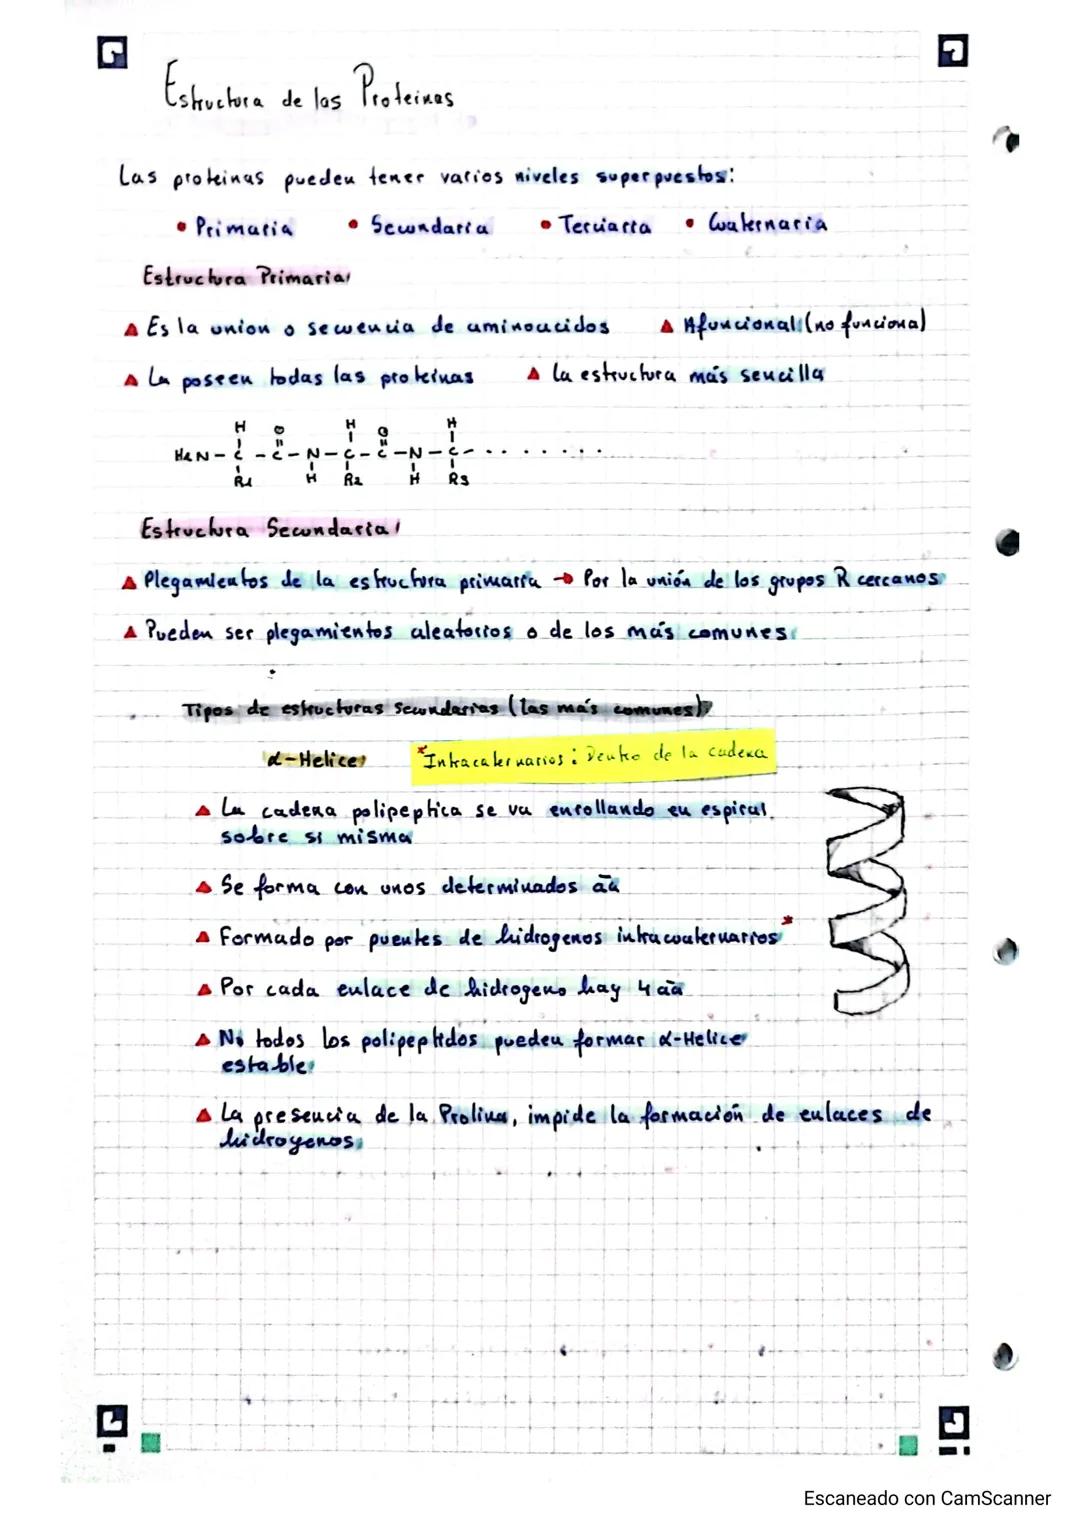 Estructura de las Proteinas
Las proteinas pueden tener varios niveles superpuestos:
• Primaria • Secundaria • Terciaria • Cuaternaria
Estructura Primaria
▲ Es la union o secuencia de aminoacidos ▲ Afuncional (no funciona)
▲ La poseen todas las proteinas ▲ la estructura más sencilla
H O H O H
H2N - C - C - N - C - C - N - C - . . . . . . . .
R1 H R2 H R3
Estructura Secundaria
▲ Plegamientos de la estructura primaria → Por la unión de los grupos R cercanos
▲ Pueden ser plegamientos aleatorios o de los más comunes
Tipos de estructuras secundarias (las más comunes)
α-Helice
*Intracaternarios: Dentro de la cadena
▲ La cadena polipeptica se va enrollando en espiral
sobre si misma
▲ Se forma con unos determinados āa
▲ Formado por puentes de hidrogenos intracuaternarios*
▲ Por cada enlace de hidrogeno hay 4 āa
▲ No todos los polipeptidos pueden formar α-Helice
estable
▲ La presencia de la Prolina, impide la formación de enlaces de
hidrogenos
Escaneado con CamScanner